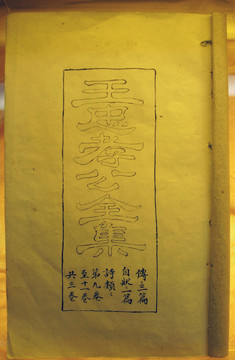 王忠孝公全集
傳三篇
自狀一篇
詩類：
第九卷
至十一卷
共三卷